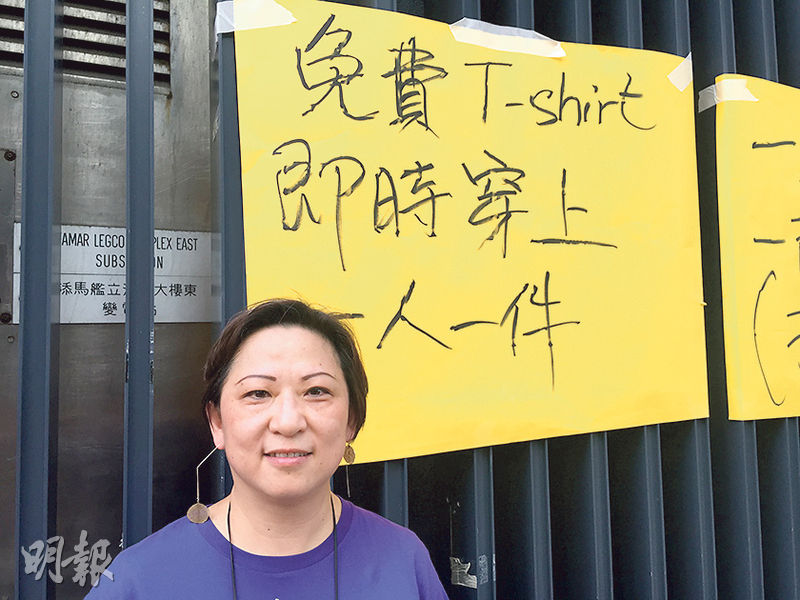 免費 T-shirt
即時穿上
一人一件
一
一
(
AMAR LEGCO PLEX EAST
SUBS ON
添馬艦立 大樓東
變
明報